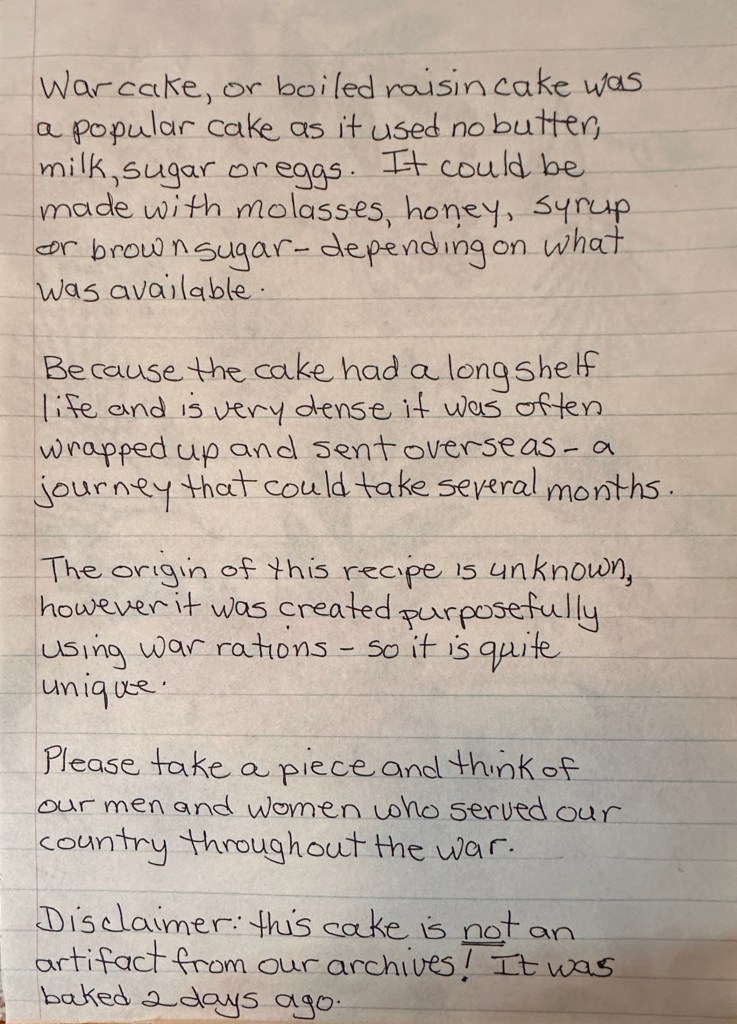 War cake, or boiled raisin cake was
a popular cake as it used no butter,
milk, sugar or eggs. It could be
made with molasses, honey, syrup
or brown sugar - depending on what
was available.
Because the cake had a long shelf
life and is very dense it was often
wrapped up and sent overseas - a
journey that could take several months.
The origin of this recipe is unknown,
however it was created purposefully
using war rations - so it is quite
unique.
Please take a piece and think of
our men and women who served our
country throughout the war.
Disclaimer: this cake is not an
artifact from our archives! It was
baked 2 days ago.